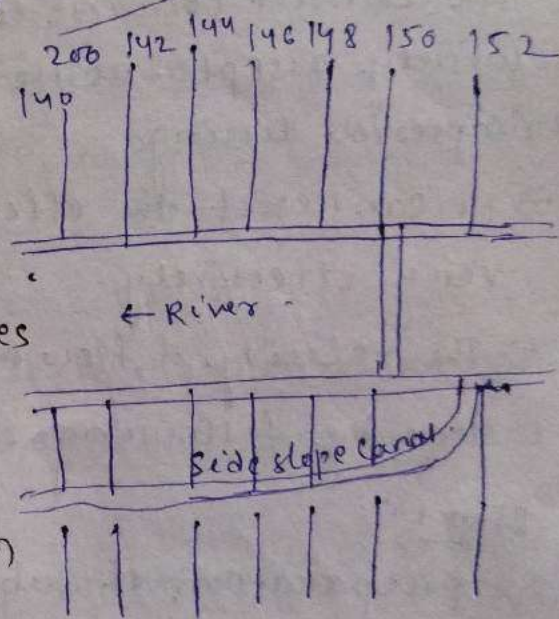 200 142 144 146 148 150 152
140
es
← River
Side slope canal.
)